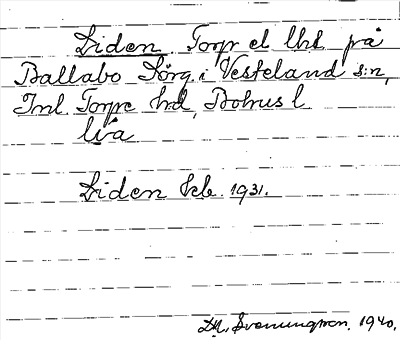 Liden Torp el lht på
Ballabo Sörg. i Vesteland s:n,
Inl. Torpe hd, Bohus l
lia
Liden kb. 1931.
D.A. Svenungsson. 1940.